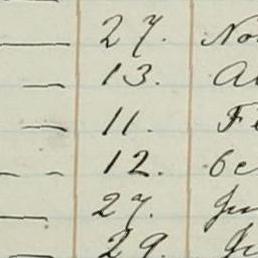 27. No
13. A
11. Fe
12. Oc
27. Ju
29. Ju